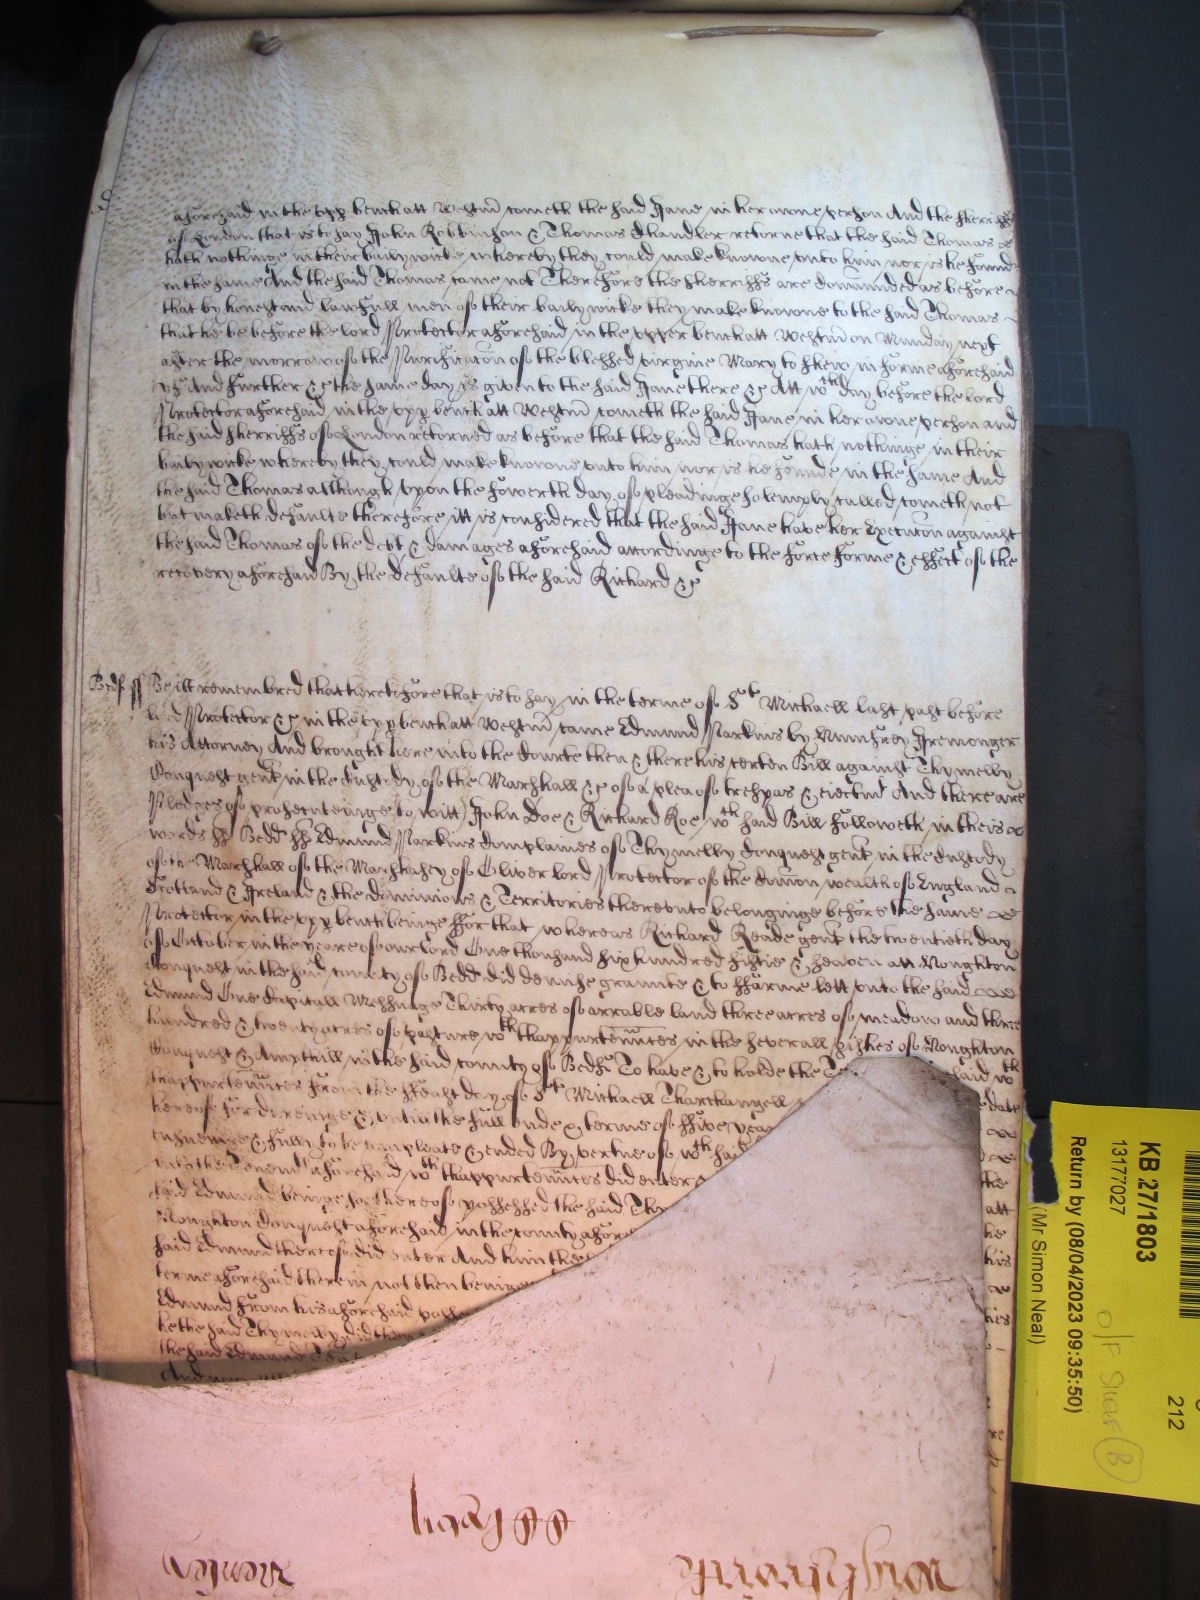 aforesaid in the upp bench att Westm̄ cometh the said Jane in her owne person And the sherriffs
of London that is to say John Robbinson & Thomas Chandler retorne that the said Thomas
hath nothinge in their bailywicke whereby they could make knowne unto him nor is he found
in the same And the said Thomas came not Therefore the sherriffs are com̄anded as before
that by honest and lawfull men of their bailywicke they make knowne to the said Thomas
that he be before the lord Protector aforesaid in the upper bench att Westm̄ on Munday next
after the morrow of the Purificac̄on of the blessed virgine Mary to shew in forme aforesaid
yf And further &c the same day is given to the said Jane there &c Att wch day before the lord
Protector aforesaid in the upp bench att Westm̄ cometh the said Jane in her owne person and
the said sherriffs of London retorned as before that the said Thomas hath nothinge in their
bailywicke whereby they could make knowne unto him nor is he founde in the same And
the said Thomas although upon the fowerth day of pleadinge solemply called cometh not
but maketh defaulte therefore itt is considered that the said Jane have her Execuc̄on against
the said Thomas of the debt & damages aforesaid accordinge to the force forme & effect of the
recovery aforesaid By the defaulte of the said Richard &c
Bedf ss Be itt remembred that heretofore that is to say in the terme of St Michaell last past before
lord Protector &c in the upp bench att Westm̄ came Edmund Parkins by Humfrey Iremonger
his Attorney And brought here into the Courte then & there his certen Bill against Thymelby
Conquest gent in the Custody of the Marshall &c of a plea of trespas & eiectmt And there are
Pledges of prosecuteinge to witt John Doe & Richard Roe wch said Bill followeth in theis
words ss Bedd ss Edmund Parkins Complaines of Thymelby Conquest gent in the Custody
of the Marshall of the Marshalsey of Oliver lord Protector of the Com̄on wealth of England
Scotland & Ireland & the dominions & Territories thereunto belonginge before the same
Protector in the upp bench beinge ffor that whereas Richard Reade gent the twentieth day
of October in the yeare of our Lord One thousand six hundred fiftie & seaven att Houghton
Conquest in the said county of Bedd did demise graunte & to ffarme lett unto the said
Edmund One Capitall Messuage Thirty acres of arrable land three acres of meadow and three
hundred & twenty acres of pasture wth thappurten̄nces in the severall pishes of Houghton
Conquest & Ampthill in the said county of Bedf To have & to holde the said wth
thappurten̄nces from the ffeast day of St Michaell Tharchangell date
hereof for duringe & untill the full ende & terme of ffive yeares
ensueinge & fully to be compleate & ended By vertue of wch said
into the Tenemts aforesaid wth thappurten̄nces did enter the
said Edmund beinge soe thereof possessed the said Thy att
Houghton Conquest aforesaid in the county afores
said Edmund thereof did enter And him the his
terme aforesaid therein not then beinge
Edmund from his aforesaid poss
he the said Thymelby did then
the said Edmund
And now
KB 27/1803
13177027
Return by (08/04/2023 09:35:50)
(Mr Simon Neal)
212
B